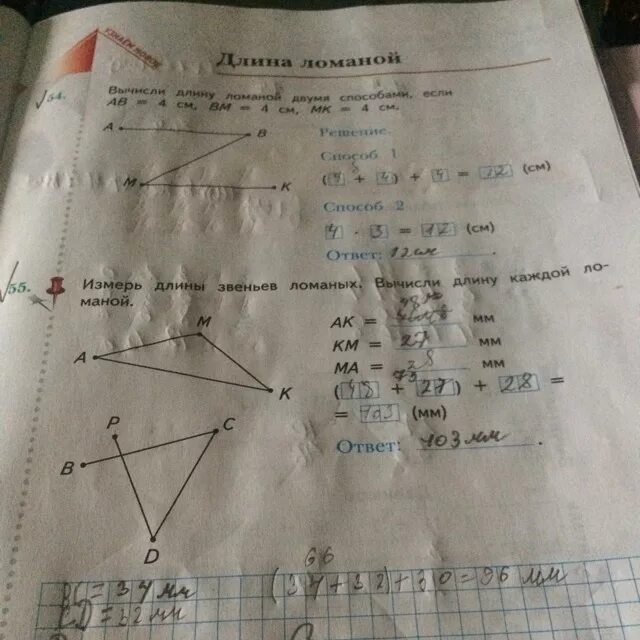 УЗНАЁМ НОВОЕ
Длина ломаной
54. Вычисли длину ломаной двумя способами, если
AB = 4 см, BM = 4 см, MK = 4 см.
A B
M K
Решение.
Способ 1
(4 + 4) + 4 = 12 (см)
Способ 2
4 · 3 = 12 (см)
Ответ: 12 см.
55. Измерь длины звеньев ломаных. Вычисли длину каждой ло-
маной.
M
A
K
AK = мм
KM = 27 мм
MA = 28 мм
(48 + 27) + 28 =
= 103 (мм)
Ответ: 103 мм.
P C
B
D
BC = 34 мм
CD = 32 мм
66
(34+32)+30=96 мм